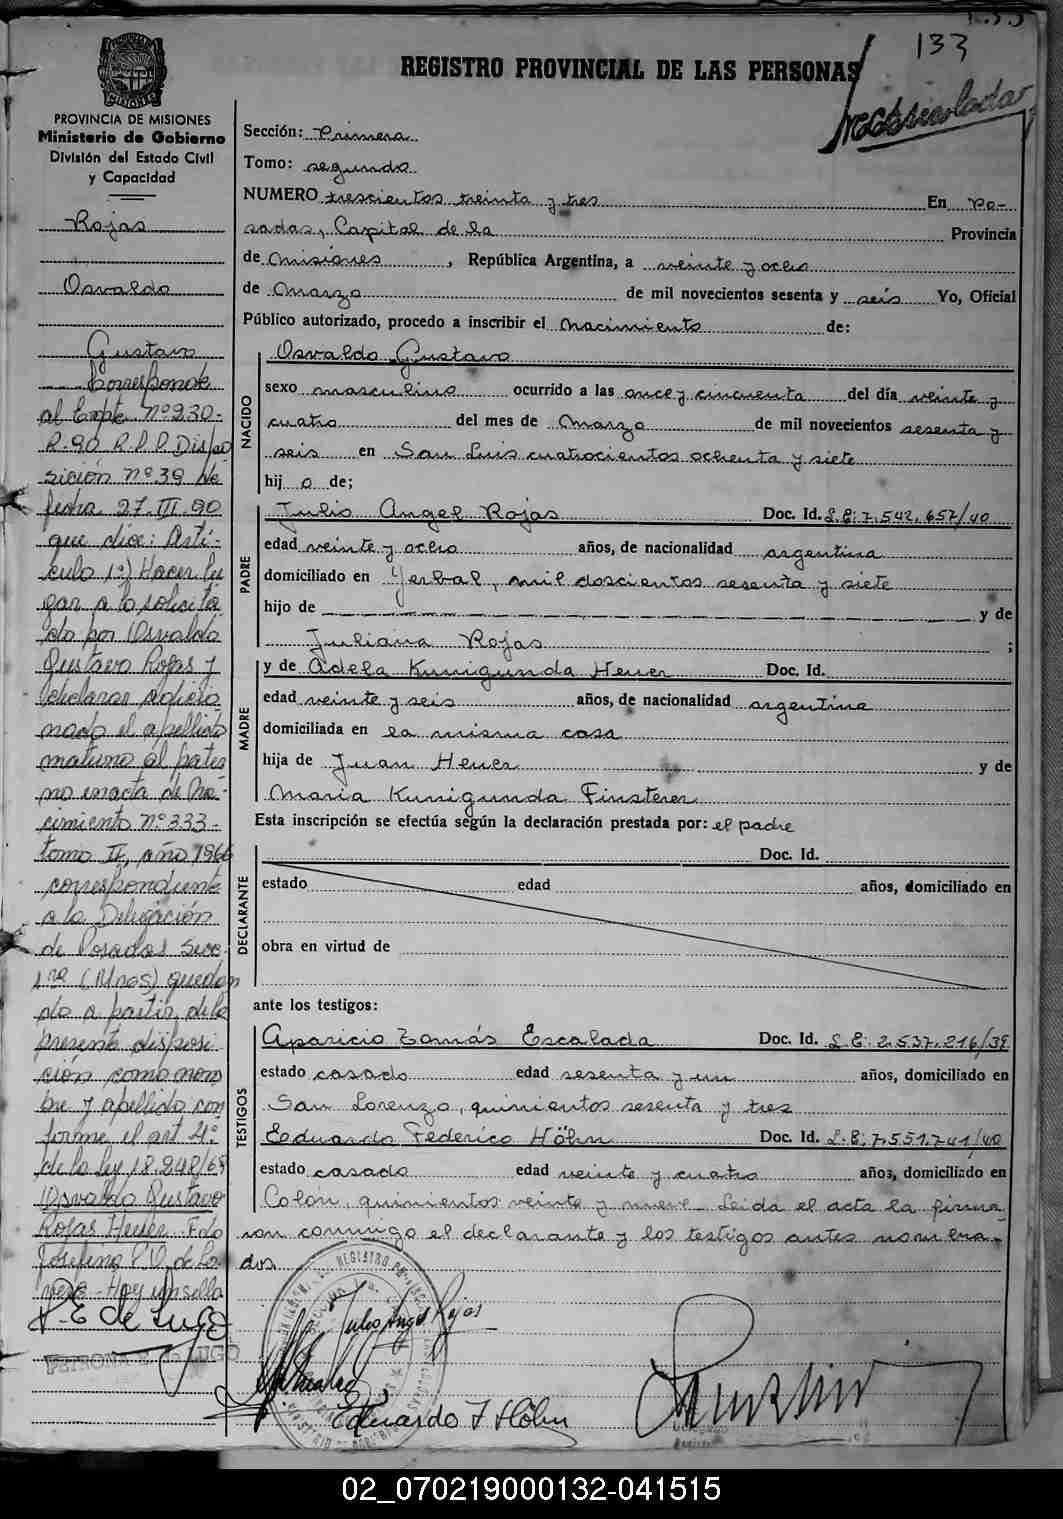 133
REGISTRO PROVINCIAL DE LAS PERSONAS
PROVINCIA DE MISIONES
Ministerio de Gobierno
División del Estado Civil
y Capacidad
Rojas
Osvaldo
Gustavo
Corresponde
al Expte Nº 230-
R-90 R.P.P. Dispo
sición nº 39 de
fecha 27-III-90
que dice: Artí-
culo 1º) Hacer lu
gar a lo solicita
do por Osvaldo
Gustavo Rojas y
declarar adicio
nado el apellido
materno al pater
no en acta de Na-
cimiento nº 333-
tomo II, año 1966
correspondiente
a la Delegación
de Posadas Secc.
1ra (Mnes) quedan
do a partir de la
presente disposi
ción como nom
bre y apellido con
forme el art 4º
de la Ley 18.248/69
Osvaldo Gustavo
Rojas Heuer. Fdo
Josefina
Hay un sello
P. E de Lugo
PETRONA E. de LUGO
Sección: Primera
Tomo: segundo
NUMERO trescientos treinta y tres En Po-
sadas, Capital de la Provincia
de Misiones, República Argentina, a veinte y ocho
de Marzo de mil novecientos sesenta y seis Yo, Oficial
Público autorizado, procedo a inscribir el nacimiento de:
NACIDO
Osvaldo Gustavo
sexo masculino ocurrido a las once y cincuenta del día veinte y
cuatro del mes de Marzo de mil novecientos sesenta y
seis en San Luis cuatrocientos ochenta y siete
hij o de;
PADRE
Julio Angel Rojas Doc. Id. L.E: 7.542.657/40
edad veinte y ocho años, de nacionalidad argentina
domiciliado en Yerbal, mil doscientos sesenta y siete
hijo de y de
Juliana Rojas ;
MADRE
y de Adela Kunigunda Heuer Doc. Id.
edad veinte y seis años, de nacionalidad argentina
domiciliada en la misma casa
hija de Juan Heuer y de
Maria Kunigunda Finsterer
Esta inscripción se efectúa según la declaración prestada por: el padre
DECLARANTE
Doc. Id.
estado edad años, domiciliado en
obra en virtud de
ante los testigos:
TESTIGOS
Aparicio Tomás Escalada Doc. Id. L.E: 2.537.216/39
estado casado edad sesenta y un años, domiciliado en
San Lorenzo, quinientos sesenta y tres
Eduardo Federico Höhn Doc. Id. L.E: 7.551.741/40
estado casado edad veinte y cuatro años, domiciliado en
Colón, quinientos veinte y nueve. Leida el acta la firma-
ron conmigo el declarante y los testigos antes nombra-
dos.
Julio Angel Rojas
Eduardo F Höhn
02_070219000132-041515